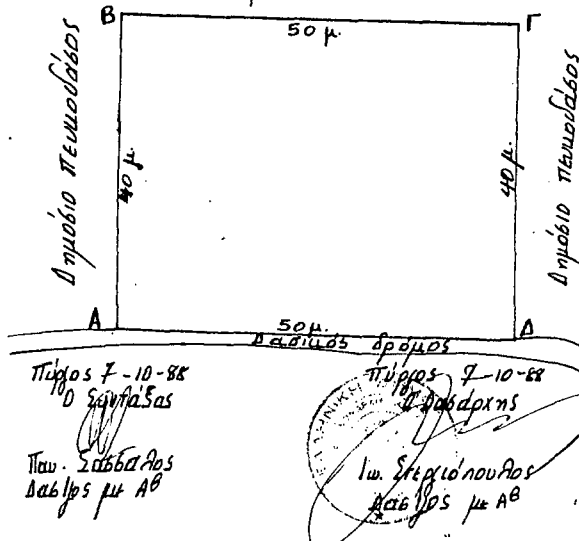 Β
Γ
50 μ.
Δημόσιο πευκοδάσος
40 μ.
40 μ.
Δημόσιο πευκοδάσος
Α
50 μ.
Δ
Δασικός δρόμος
Πύργος 7-10-88
Ο Συντάξας
Παν. Σασσαλος
Δασ/γος με Αβ
Πύργος 7-10-88
Ο Δασάρχης
Ιω. Στεργιόπουλος
Δασ/γος με Αβ